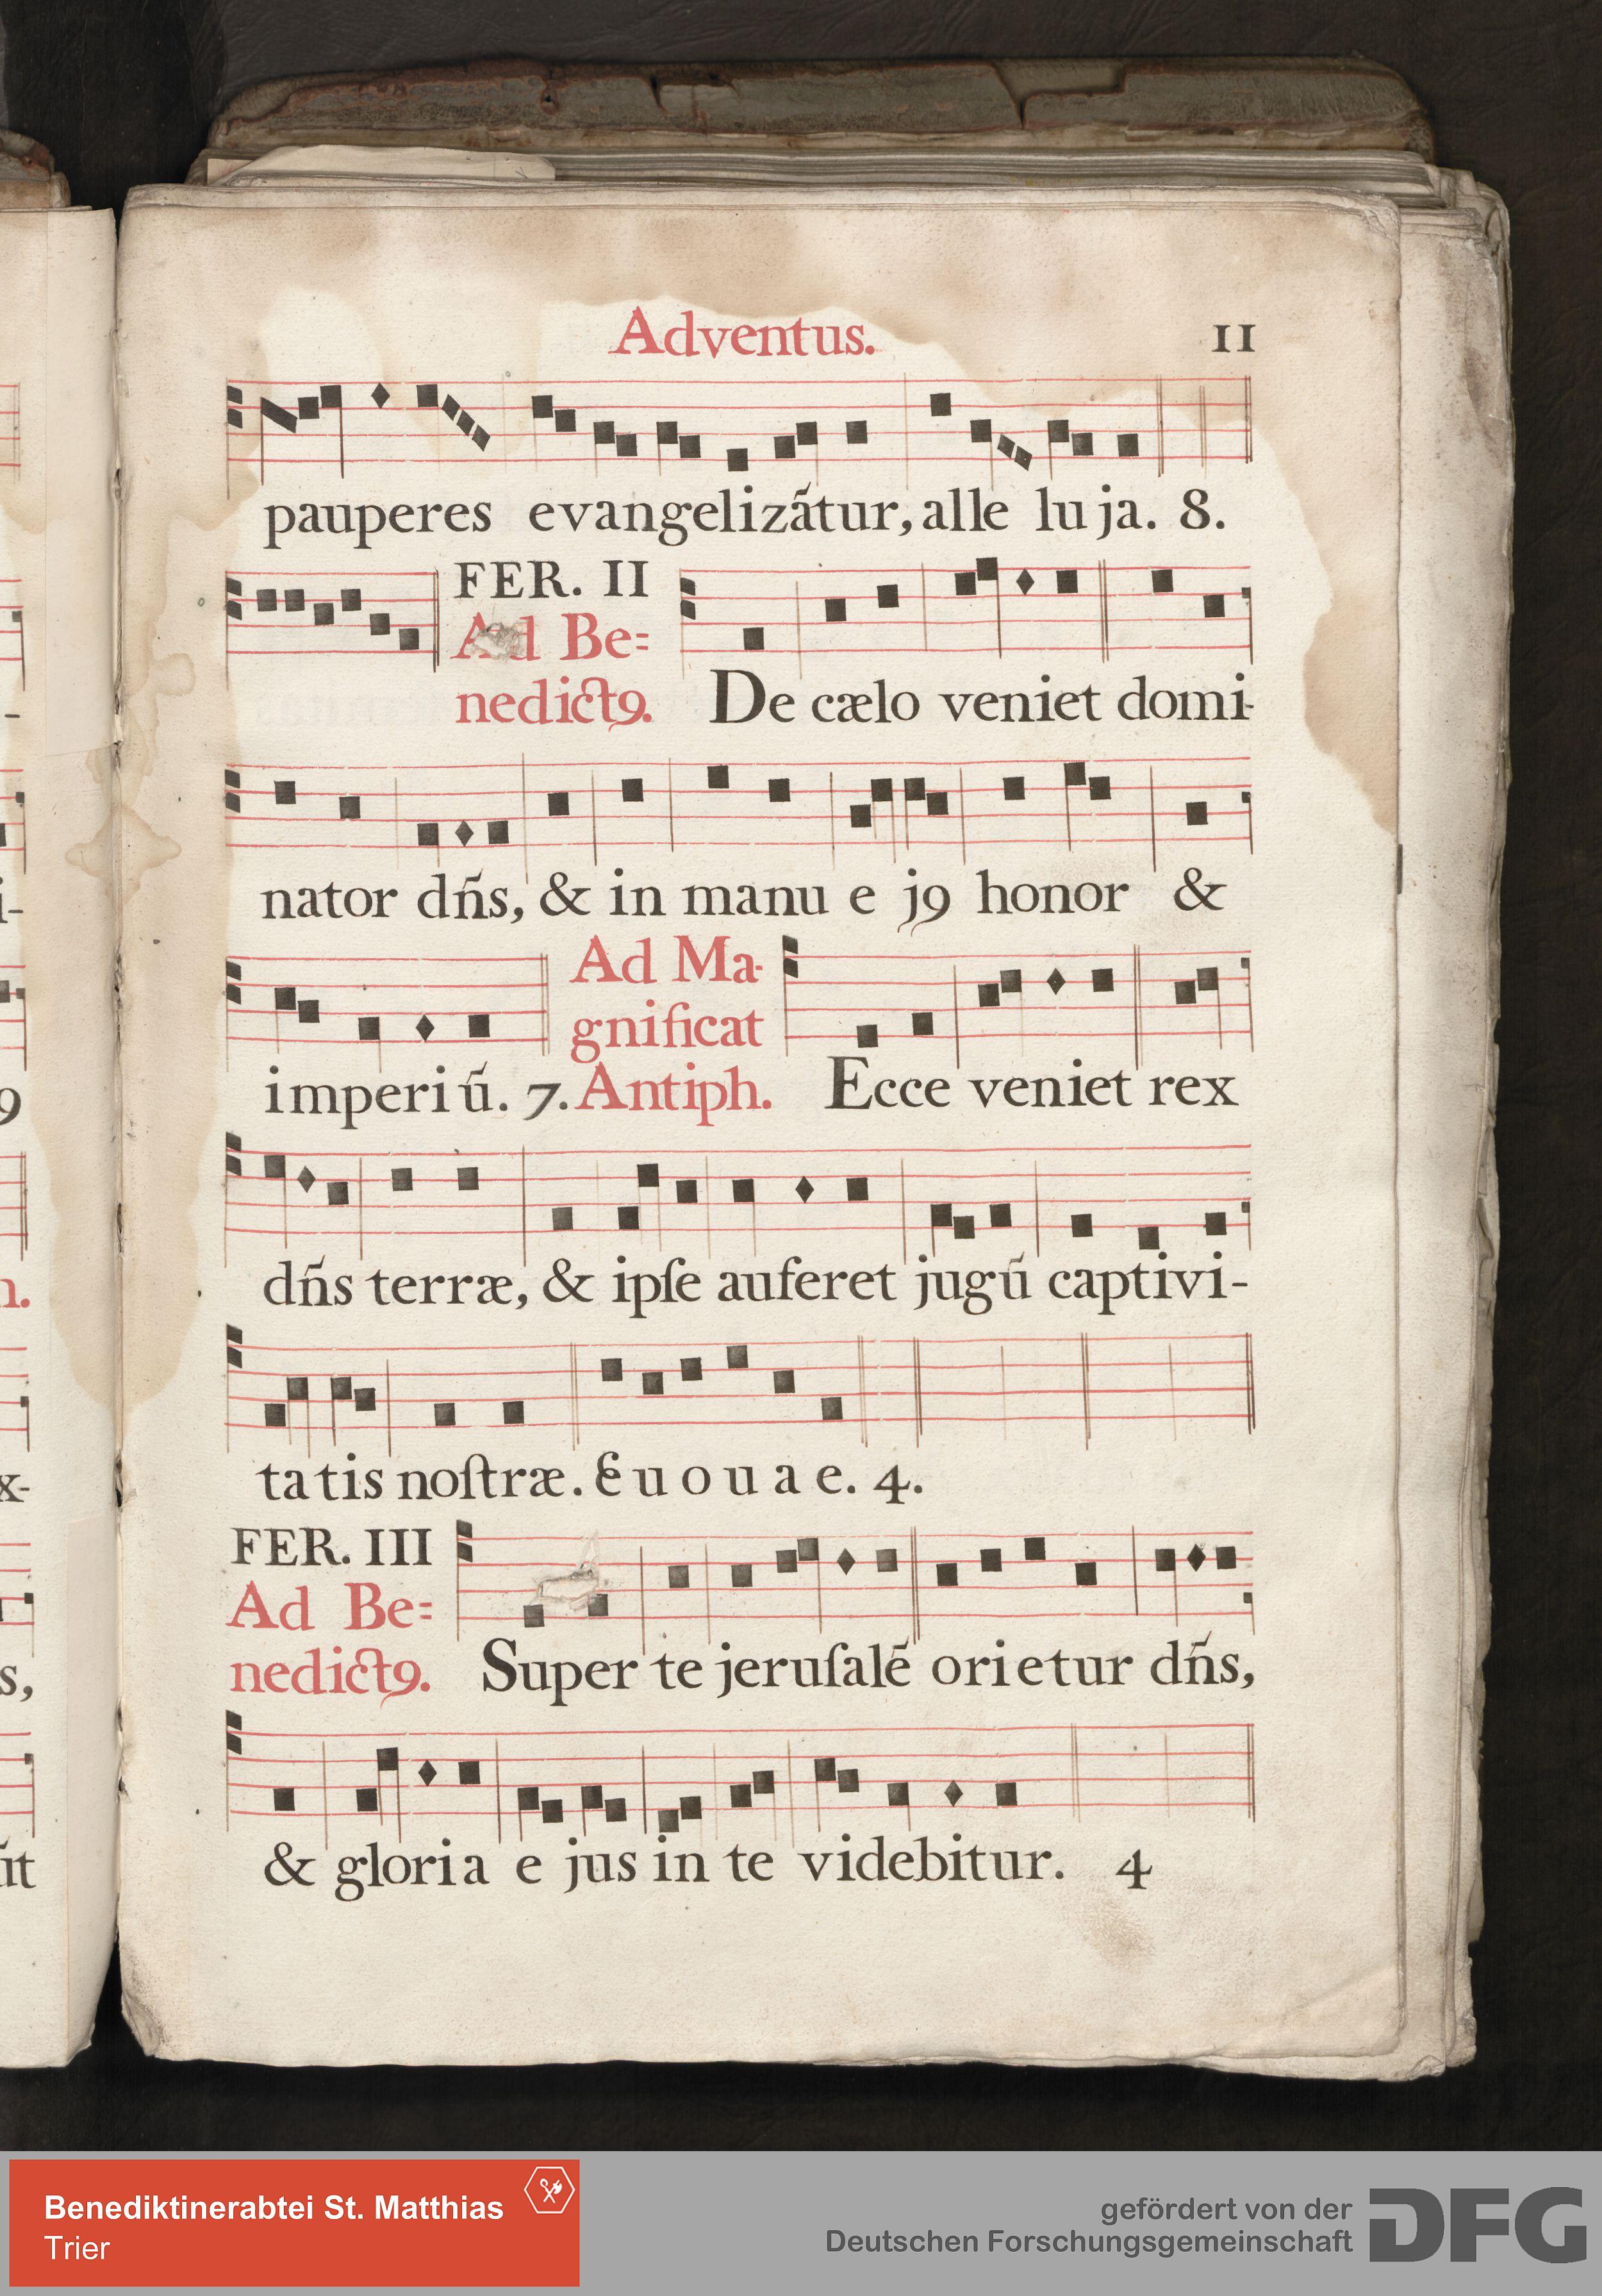 Adventus. 11
pauperes evangelizãtur, alle lu ja. 8.
FER. II
Ad Be=
nedictꝯ. De cælo veniet domi-
nator dñs, & in manu e jꝯ honor &
Ad Ma-
gnificat
imperiũ. 7. Antiph. Ecce veniet rex
dñs terræ, & ipſe auferet jugũ captivi-
ta tis noſtræ. E u o u a e. 4.
FER. III
Ad Be=
nedictꝯ. Super te jeruſalẽ orietur dñs,
& gloria e jus in te videbitur. 4
i-
ꝯ
n.
x-
s,
ũt
Benediktinerabtei St. Matthias
Trier
gefördert von der
Deutschen Forschungsgemeinschaft
DFG